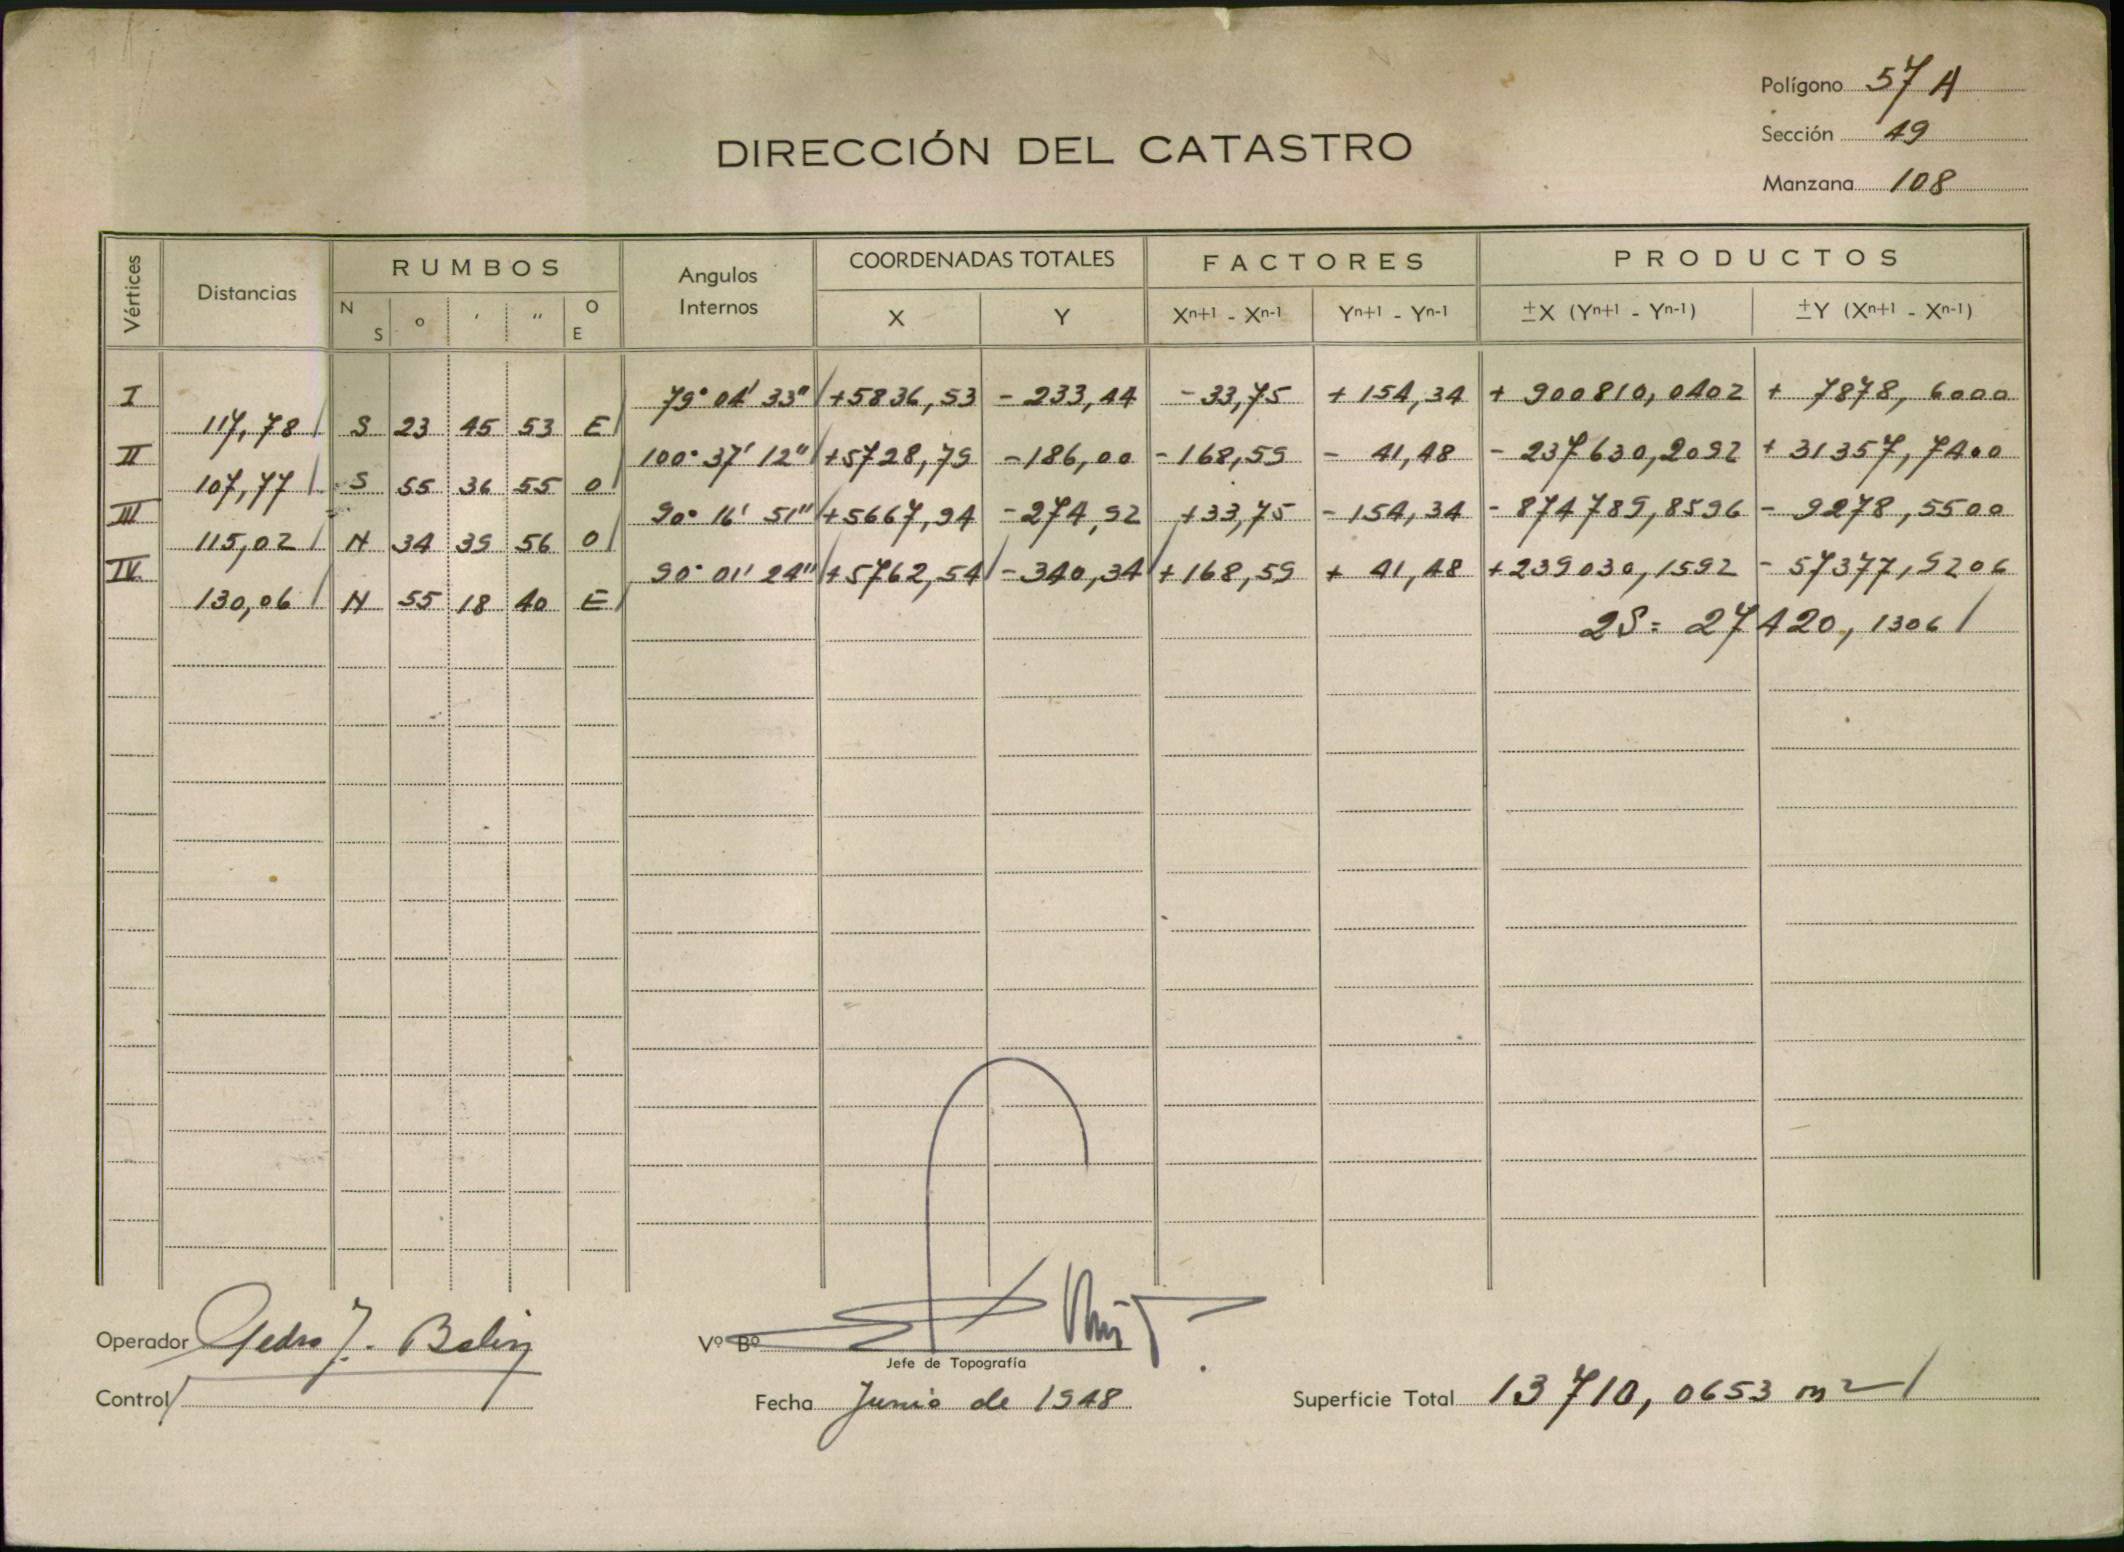 Polígono 57 A
DIRECCIÓN DEL CATASTRO
Sección 49
Manzana 108
Vértices Distancias RUMBOS Angulos Internos COORDENADAS TOTALES FACTORES PRODUCTOS
N S ° ' " O E X Y Xn+1 - Xn-1 Yn+1 - Yn-1 ±X (Yn+1 - Yn-1) ±Y (Xn+1 - Xn-1)
I 79° 04' 33" +5836,53 - 233,44 - 33,75 + 154,34 + 900810,0402 + 7878,6000
117,78 S 23 45 53 E
II 100° 37' 12" +5728,79 - 186,00 - 168,59 - 41,48 - 237630,2092 + 31357,7400
107,77 S 55 36 55 O
III 90° 16' 51" +5667,94 - 274,92 + 33,75 - 154,34 - 874789,8596 - 9278,5500
115,02 N 34 39 56 O
IV 90° 01' 24" +5762,54 - 340,34 + 168,59 + 41,48 + 239030,1592 - 57377,9206
130,06 N 55 18 40 E
2S = 27420,1306
Operador Pedro J. Vº Bº
Jefe de Topografía
Control Fecha Junio de 1948 Superficie Total 13710,0653 m2